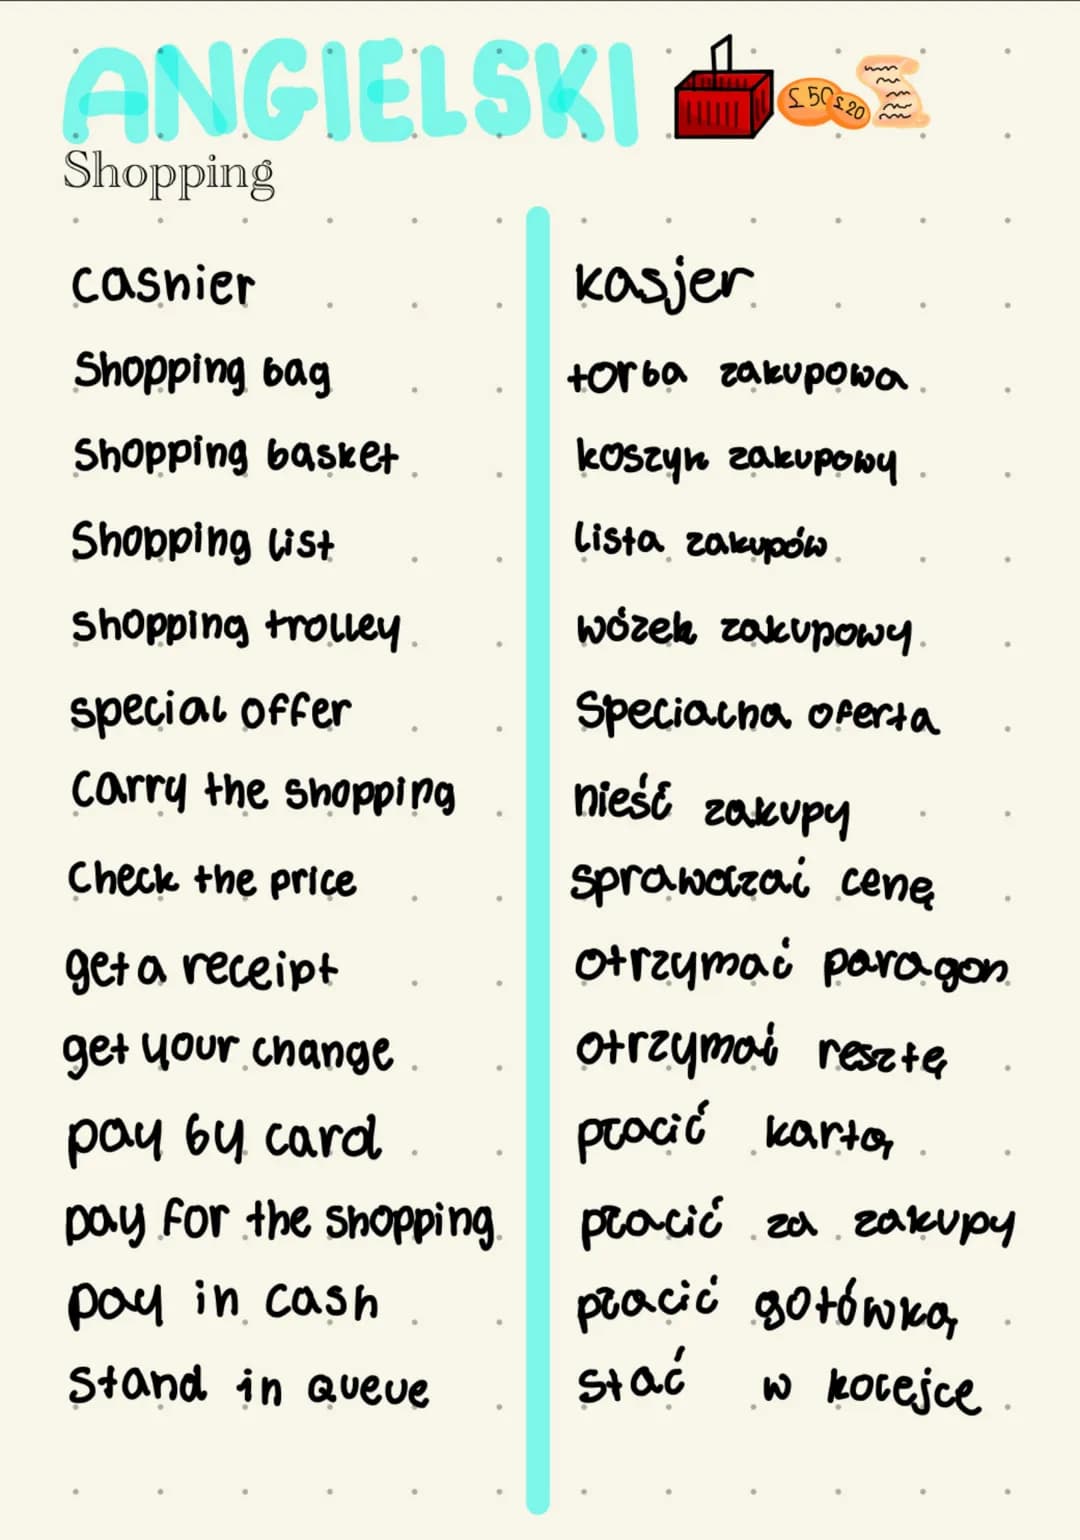 ANGIELSKI
£50 £20
Shopping
cashier kasjer
Shopping bag torba zakupowa
Shopping basket koszyk zakupowy
Shopping list lista zakupów
shopping trolley wózek zakupowy
special offer Specialna oferta
Carry the shopping nieść zakupy
Check the price sprawdzać cenę
get a receipt otrzymać paragon
get your change otrzymać resztę
pay by card płacić kartą
pay for the shopping płacić za zakupy
pay in cash płacić gotówką
Stand in queue stać w kolejce